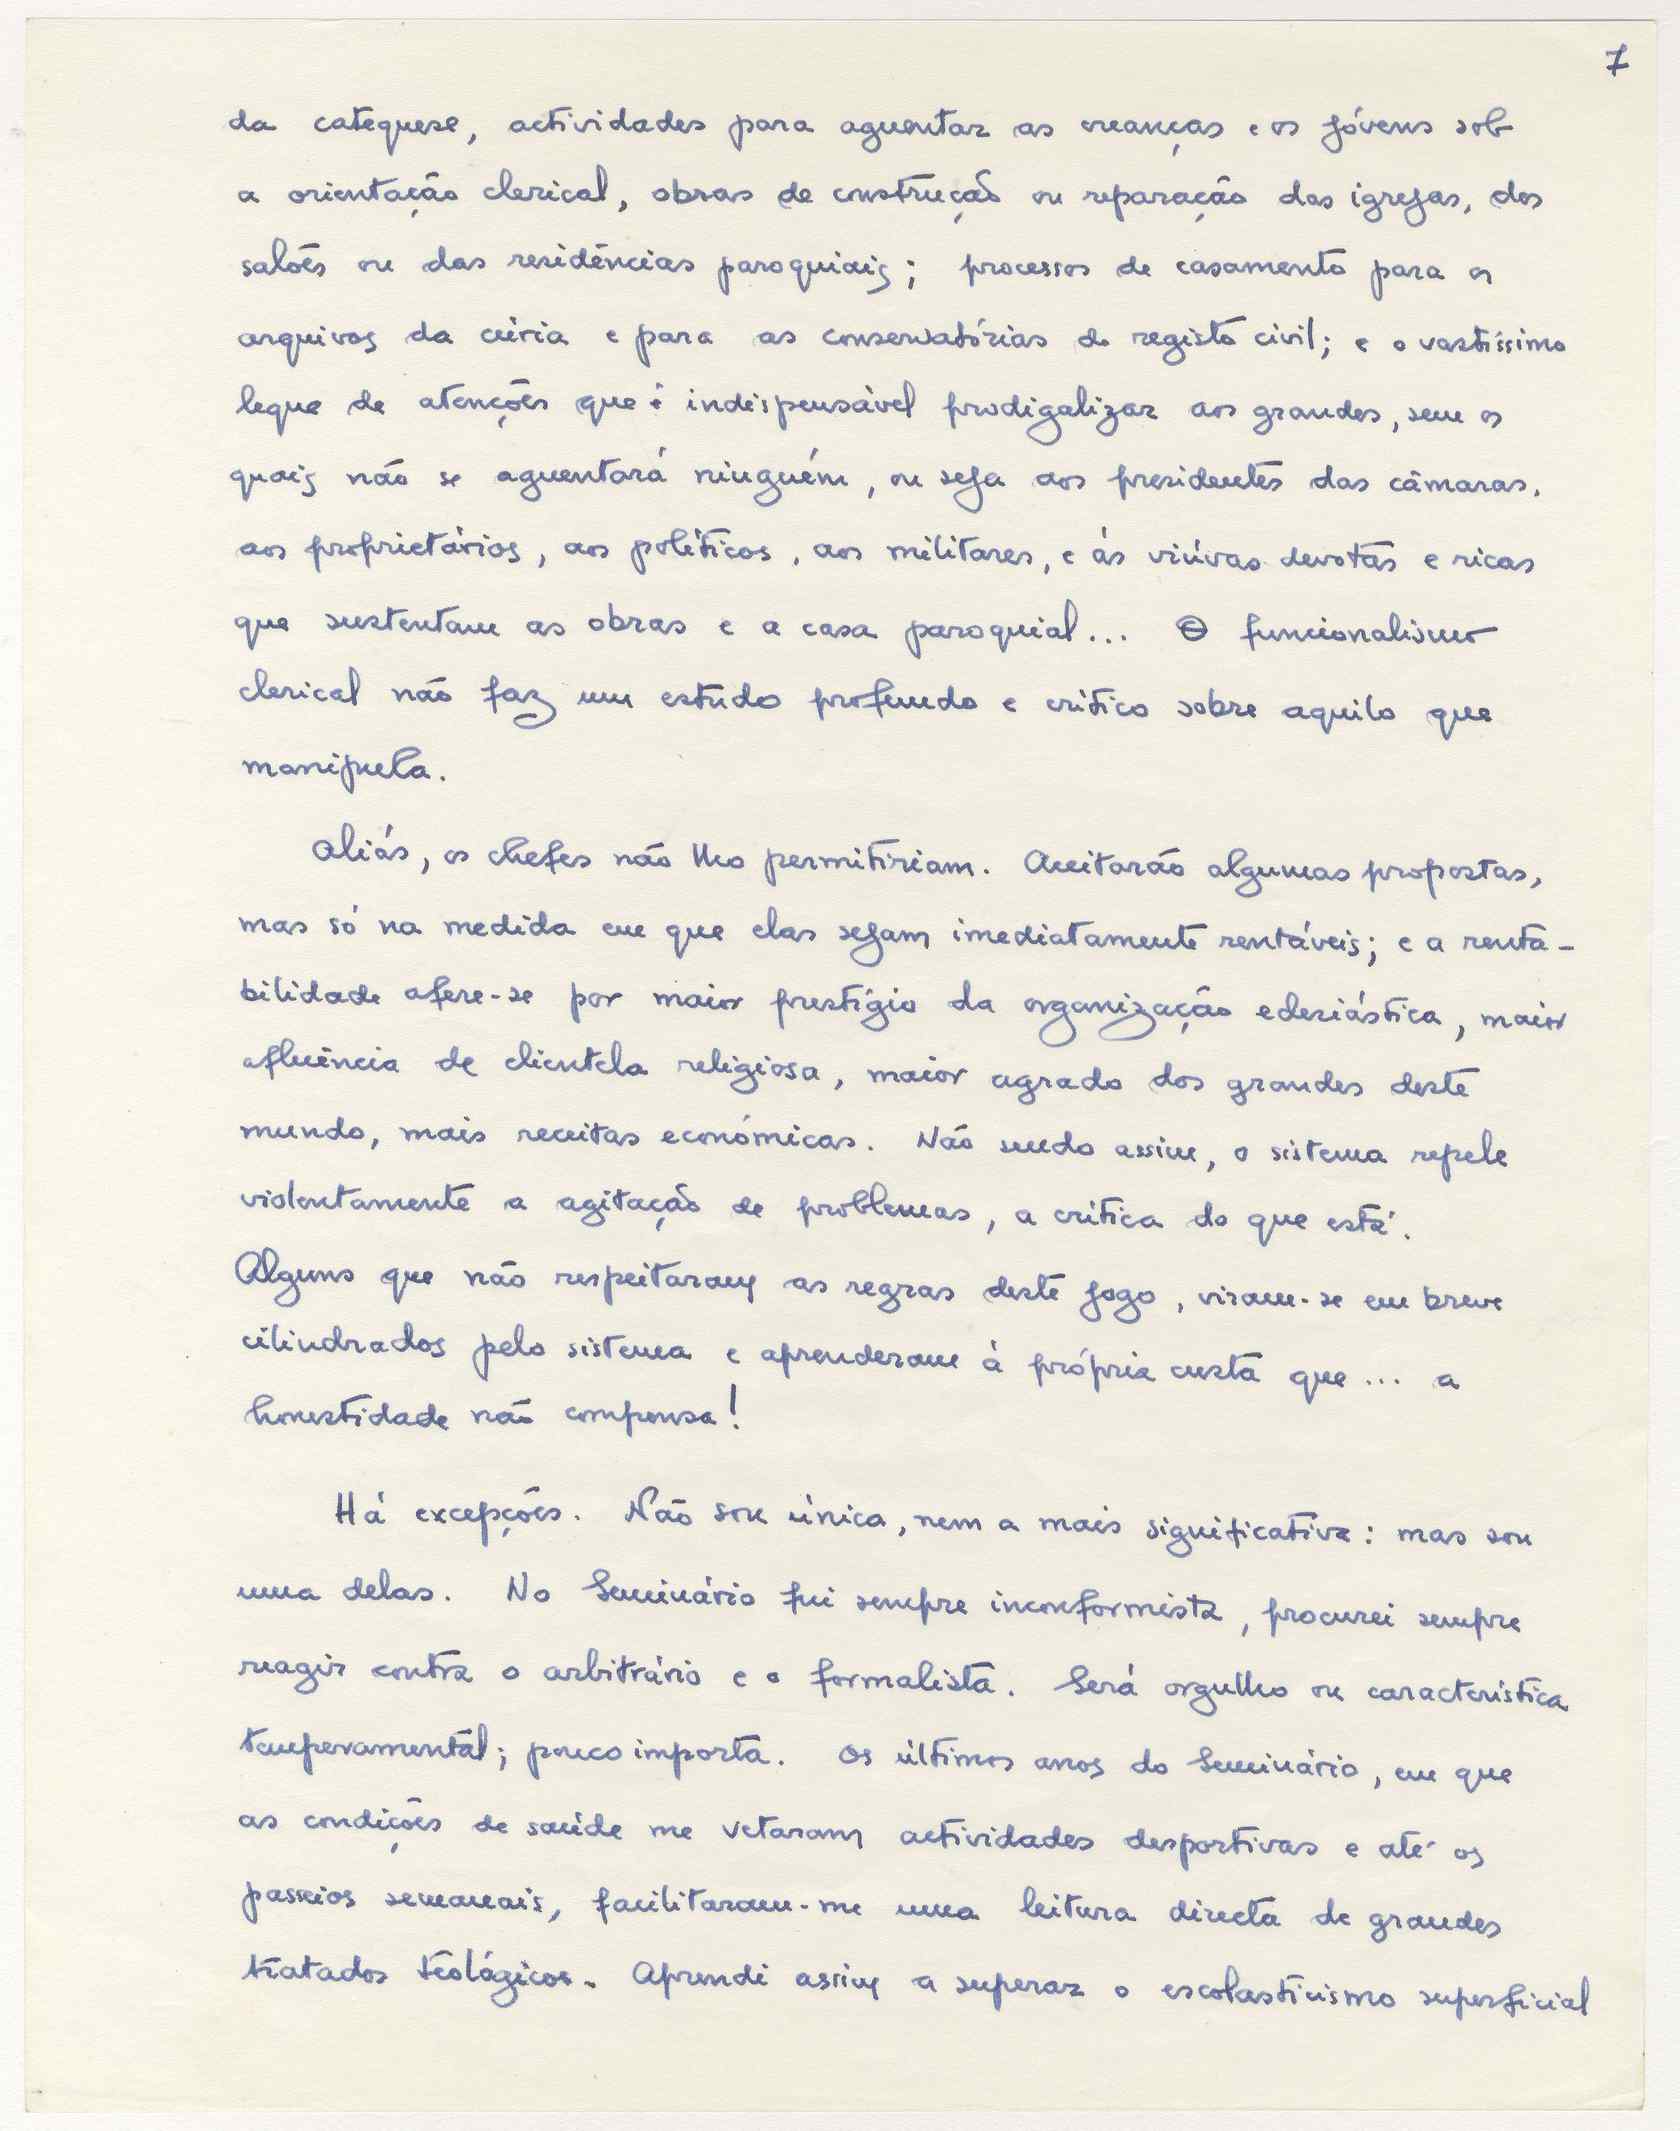 7
da catequese, actividades para aguentar as creanças e os jóvens sob
a orientação clerical, obras de construção ou reparação das igrejas, dos
salões ou das residências paroquiais; processos de casamento para os
arquivos da cúria e para as conservatórias do registo civil; e o vastíssimo
leque de atenções que é indispensável prodigalizar aos grandes, sem os
quais não se aguentará ninguém, ou seja aos presidentes das câmaras,
aos proprietários, aos políticos, aos militares, e ás viúvas devotas e ricas
que sustentam as obras e a casa paroquial... O funcionalismo
clerical não faz um estudo profundo e crítico sobre aquilo que
manipula.
Aliás, os chefes não lho permitiriam. Aceitarão algumas propostas,
mas só na medida em que elas sejam imediatamente rentáveis; e a renta-
bilidade afere-se por maior prestígio da organização eclesiástica, maior
afluência de clientela religiosa, maior agrado dos grandes deste
mundo, mais receitas económicas. Não sendo assim, o sistema repele
violentamente a agitação de problemas, a crítica do que está.
Alguns que não respeitaram as regras deste jogo, viram-se em breve
cilindrados pelo sistema e aprenderam à própria custa que ... a
honestidade não compensa!
Há excepções. Não sou única, nem a mais significativa: mas sou
uma delas. No Seminário fui sempre inconformista, procurei sempre
reagir contra o arbitrário e o formalista. Será orgulho ou característica
temperamental; pouco importa. Os últimos anos do Seminário, em que
as condições de saúde me vetaram actividades desportivas e até os
passeios semanais, facilitaram-me uma leitura directa de grandes
tratados teológicos. Aprendi assim a superar o escolasticismo superficial